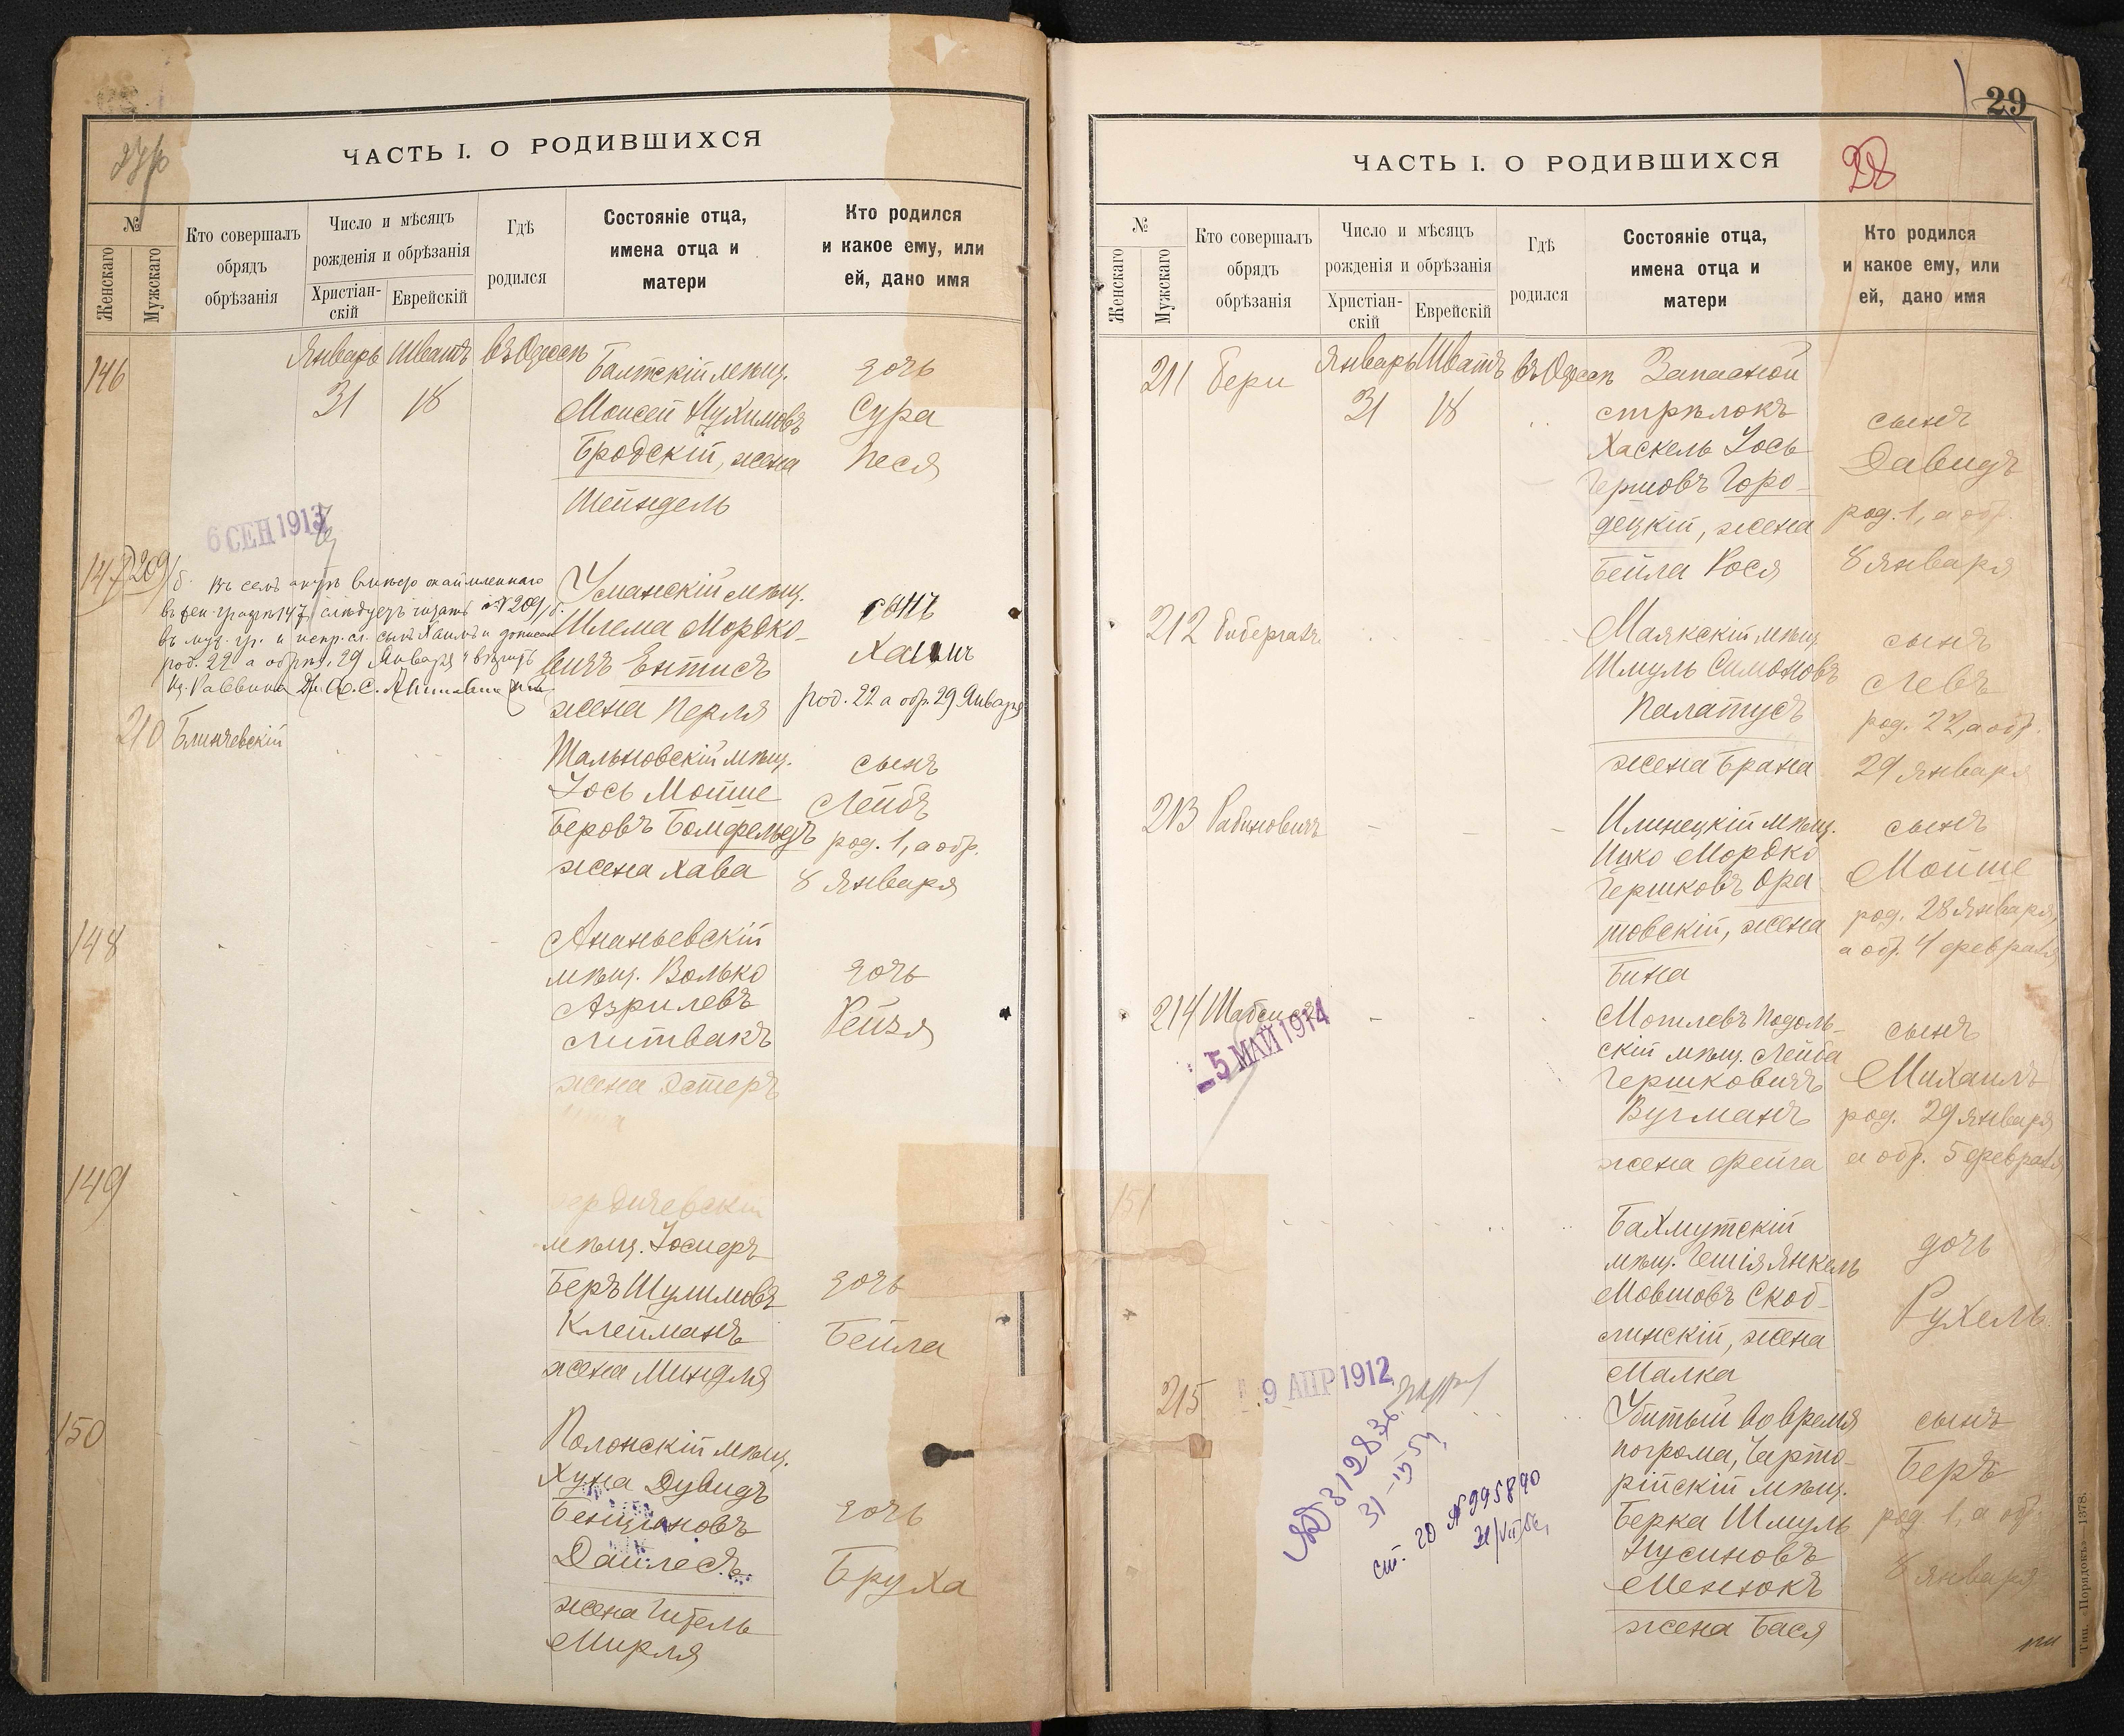 ЧАСТЬ I. О РОДИВШИХСЯ
№
Женскаго
Мужскаго
Кто совершалъ
обрядъ
обрѣзанія
Число и мѣсяцъ
рожденія и обрѣзанія
Христіан-
скій
Еврейскій
Гдѣ
родился
Состояніе отца,
имена отца и
матери
Кто родился
и какое ему, или
ей, дано имя
146
Январь Шватъ въ Одессѣ
31 18
Балтскій мѣщ.
Моисей Нухимовъ
Бродскій, жена
Шейндель
дочь
Сура
Песя
6 СЕН 1913
147 209
въ муж. гр. и испр. сл. сынъ Хаимъ и дописан
род. 22 а обрѣз. 29 Января
Уманскій мѣщ.
Шлема Мордко-
вичъ Ентисъ
жена Перля
сынъ
Хаимъ
род. 22 а обр. 29 Января
210 Блинчевскій
Тальновскій мѣщ.
Іось Мойше
Беровъ Бомфельдъ
жена Хава
сынъ
Лейбъ
род. 1, а обр.
8 Января
148
Ананьевскій
мѣщ. Волько
Азрилевъ
Литвакъ
жена Эстеръ
дочь
Рейзя
149
Бердичевскій
мѣщ. Іосиеръ
Беръ Шулимовъ
Клейманъ
жена Миндля
дочь
Бейла
150
Полонскій мѣщ.
Хуна Дувидъ
Бенціоновъ
Дайлесъ
жена Гитель
Мирля
дочь
Бруха
29
28
ЧАСТЬ I. О РОДИВШИХСЯ
№
Женскаго
Мужскаго
Кто совершалъ
обрядъ
обрѣзанія
Число и мѣсяцъ
рожденія и обрѣзанія
Христіан-
скій
Еврейскій
Гдѣ
родился
Состояніе отца,
имена отца и
матери
Кто родился
и какое ему, или
ей, дано имя
211 Бери
Январь Шватъ въ Одессѣ
31 18
Запасной
стрѣлокъ
Хаскель Іось
Гершовъ Горо-
децкій, жена
Бейла Рося
сынъ
Давидъ
род. 1, а обр.
8 Января
212
Маякскій мѣщ.
Шмуль Симоновъ
Палатусъ
жена Брана
сынъ
Левъ
род. 22, а обр.
29 Января
213 Рабиновичъ
Илинецкій мѣщ.
Ицко Мордко
Гершковъ Ора-
товскій, жена
Бина
сынъ
Мойше
род. 28 Января,
а обр. 4 февраля
214 Шабсисъ
- 5 МАЙ 1914
Могилевъ Подоль-
скій мѣщ. Лейба
Гершковичъ
Вугманъ
жена Фейга
сынъ
Михаилъ
род. 29 Января
а обр. 5 февраля
151
Бахмутскій
мѣщ. Гешія Янкель
Мовшовъ Скоб-
линскій, жена
Малка
дочь
Рухель
215
9 АПР 1912
312836
ст. 20 № 995890
Убитый во время
погрома, Чарто-
рійскій мѣщ.
Берка Шмуль
Нусиновъ
Менюкъ
жена Бася
сынъ
Беръ
род. 1, а обр.
8 января
Тип. «Порядокъ»—1378.